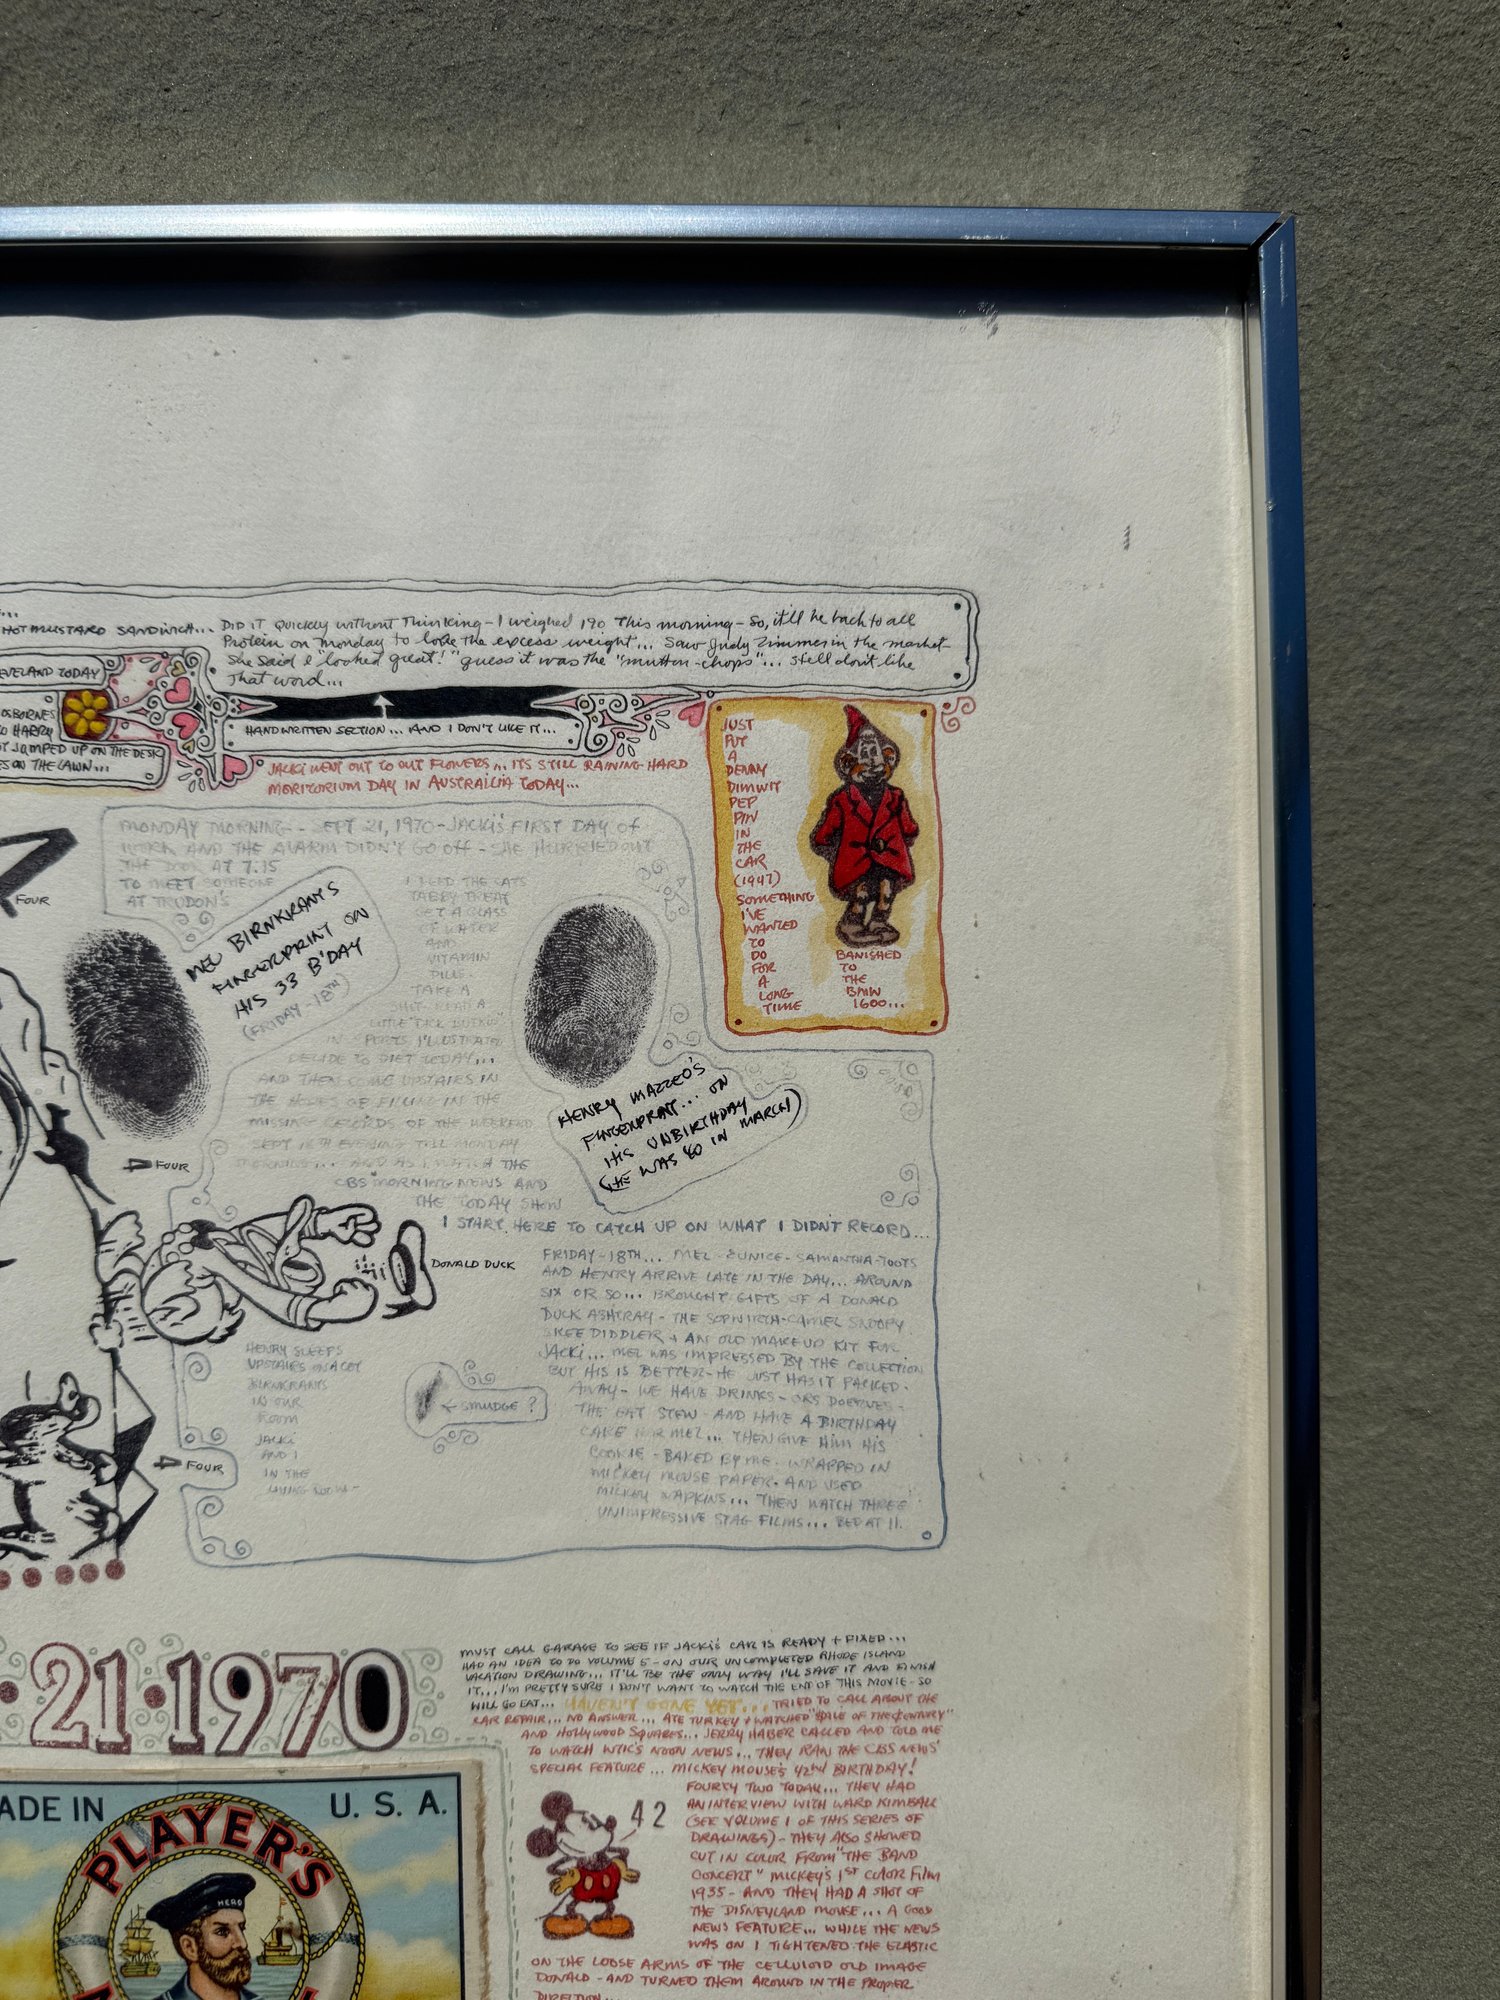 HOT MUSTARD SANDWICH...
DID IT QUICKLY WITHOUT THINKING - I weighed 190 This morning - So, it'll be back to all
Protein on Monday to lose the excess weight... Saw Judy Zimmer in the market
She said I "looked great!" guess it was the "mutton-chops"... still don't like
that word...
EVELAND TODAY
OSBORNES
O HARRY
T JUMPED UP ON THE DESK
ES ON THE LAWN...
HANDWRITTEN SECTION... AND I DON'T LIKE IT...
JACKI WENT OUT TO CUT FLOWERS... ITS STILL RAINING HARD
MORITORIUM DAY IN AUSTRAILIA TODAY...
JUST
PUT
A
DENNY
DIMWIT
PEP
PIN
IN
THE
CAR
(1947)
SOMETHING
I'VE
WANTED
TO
DO
FOR
A
LONG
TIME
BANISHED
TO
THE
BMW
1600...
MONDAY MORNING - SEPT 21, 1970 - JACKI'S FIRST DAY OF
WORK AND THE ALARM DIDN'T GO OFF - SHE HURRIED OUT
THE DOOR AT 7:15
TO MEET SOMEONE
AT TRUDON'S
FOUR
MEL BIRNKRANT'S
FINGERPRINT ON
HIS 33 B'DAY
(FRIDAY - 18TH)
I FEED THE CATS
TABBY TREAT
GET A GLASS
OF WATER
AND
VITAMIN
PILLS
TAKE A
READ A
LITTLE
IN SPORTS ILLUSTRATED
DECIDE TO DIET TODAY...
AND THEN COME UPSTAIRS IN
THE HOPES OF FILLING IN THE
MISSING RECORDS OF THE WEEKEND
SEPT 18TH EVENING TILL MONDAY
MORNING... AND AS I WATCH THE
CBS MORNING NEWS AND
THE TODAY SHOW
I START HERE TO CATCH UP ON WHAT I DIDN'T RECORD...
HENRY MAZZEO'S
FINGERPRINT... ON
HIS UNBIRTHDAY
(HE WAS 40 IN MARCH)
FOUR
DONALD DUCK
FRIDAY - 18TH... MEL - EUNICE - SAMANTHA - TOOTS
AND HENRY ARRIVE LATE IN THE DAY... AROUND
SIX OR SO... BROUGHT GIFTS OF A DONALD
DUCK ASHTRAY - THE SOPWITH-CAMEL SNOOPY
SKEE DIDDLER + AN OLD MAKE UP KIT FOR
JACKI... MEL WAS IMPRESSED BY THE COLLECTION
BUT HIS IS BETTER - HE JUST HAS IT PACKED
AWAY - WE HAVE DRINKS - ORS DOERVES -
THE EAT STEW AND HAVE A BIRTHDAY
CAKE FOR MEL... THEN GIVE HIM HIS
COOKIE - BAKED BY ME - WRAPPED IN
MICKEY MOUSE PAPER - AND USED
MICKEY NAPKINS... THEN WATCH THREE
UNIMPRESSIVE STAG FILMS... BED AT 11.
HENRY SLEEPS
UPSTAIRS ON A COT
BIRNKRANTS
IN OUR
ROOM
JACKI
AND I
IN THE
LIVING ROOM -
← SMUDGE ?
4
FOUR
21·1970
MUST CALL GARAGE TO SEE IF JACKI'S CAR IS READY + FIXED...
HAD AN IDEA TO DO VOLUME 5 - ON OUR UNCOMPLETED RHODE ISLAND
VACATION DRAWING... IT'LL BE THE ONLY WAY I'LL SAVE IT AND FINISH
IT... I'M PRETTY SURE I DON'T WANT TO WATCH THE END OF THIS MOVIE - SO
WILL GO EAT... HAVEN'T GONE YET... TRIED TO CALL ABOUT THE
CAR REPAIR... NO ANSWER... ATE TURKEY + WATCHED "SALE OF THE CENTURY"
AND HOLLYWOOD SQUARES... JERRY HABER CALLED AND TOLD ME
TO WATCH WTIC'S NOON NEWS... THEY RAN THE CBS NEWS'
SPECIAL FEATURE... MICKEY MOUSE'S 42ND BIRTHDAY!
FOURTY TWO TODAY... THEY HAD
AN INTERVIEW WITH WARD KIMBALL
(SEE VOLUME 1 OF THIS SERIES OF
DRAWINGS) - THEY ALSO SHOWED
CUT IN COLOR FROM "THE BAND
CONCERT" MICKEY'S 1ST COLOR FILM
1935 - AND THEY HAD A SHOT OF
THE DISNEYLAND MOUSE... A GOOD
NEWS FEATURE... WHILE THE NEWS
WAS ON I TIGHTENED THE ELASTIC
ON THE LOOSE ARMS OF THE CELLULOID OLD IMAGE
DONALD - AND TURNED THEM AROUND IN THE PROPER
DIRECTION...
42
ADE IN U. S. A.
PLAYER'S
HERO